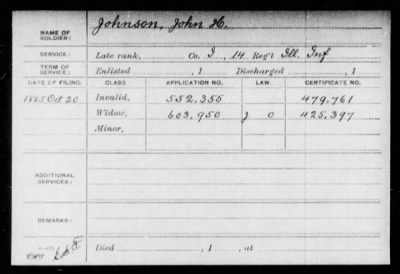 NAME OF SOLDIER: Johnson, John H.
SERVICE: Late rank, Co. I, 14 Reg't Ill. Inf
TERM OF SERVICE: Enlisted , 1 Discharged , 1
DATE OF FILING. CLASS APPLICATION NO. LAW. CERTIFICATE NO.
1885 Oct 20 Invalid, 552,355 479,761
Widow, 603,950 J 0 425,397
Minor,
ADDITIONAL SERVICES:
REMARKS:
Died , 1 , at